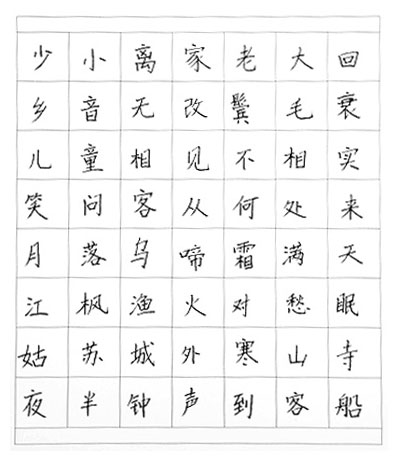 少小离家老大回
乡音无改鬓毛衰
儿童相见不相实
笑问客从何处来
月落乌啼霜满天
江枫渔火对愁眠
姑苏城外寒山寺
夜半钟声到客船